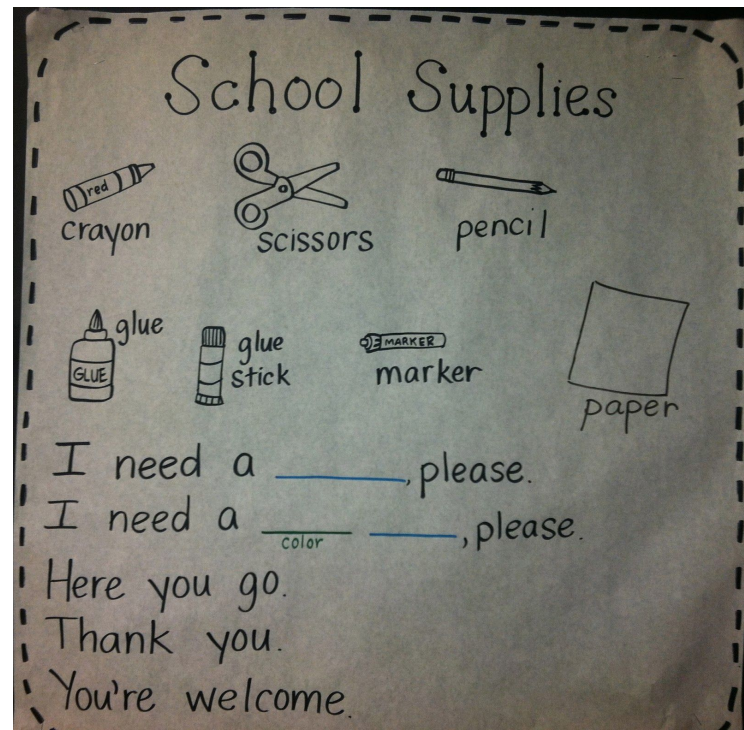 School Supplies
red
crayon
scissors
pencil
GLUE
glue
glue
stick
MARKER
marker
paper
I need a ______, please.
I need a ______ ______, please.
color
Here you go.
Thank you.
You're welcome.